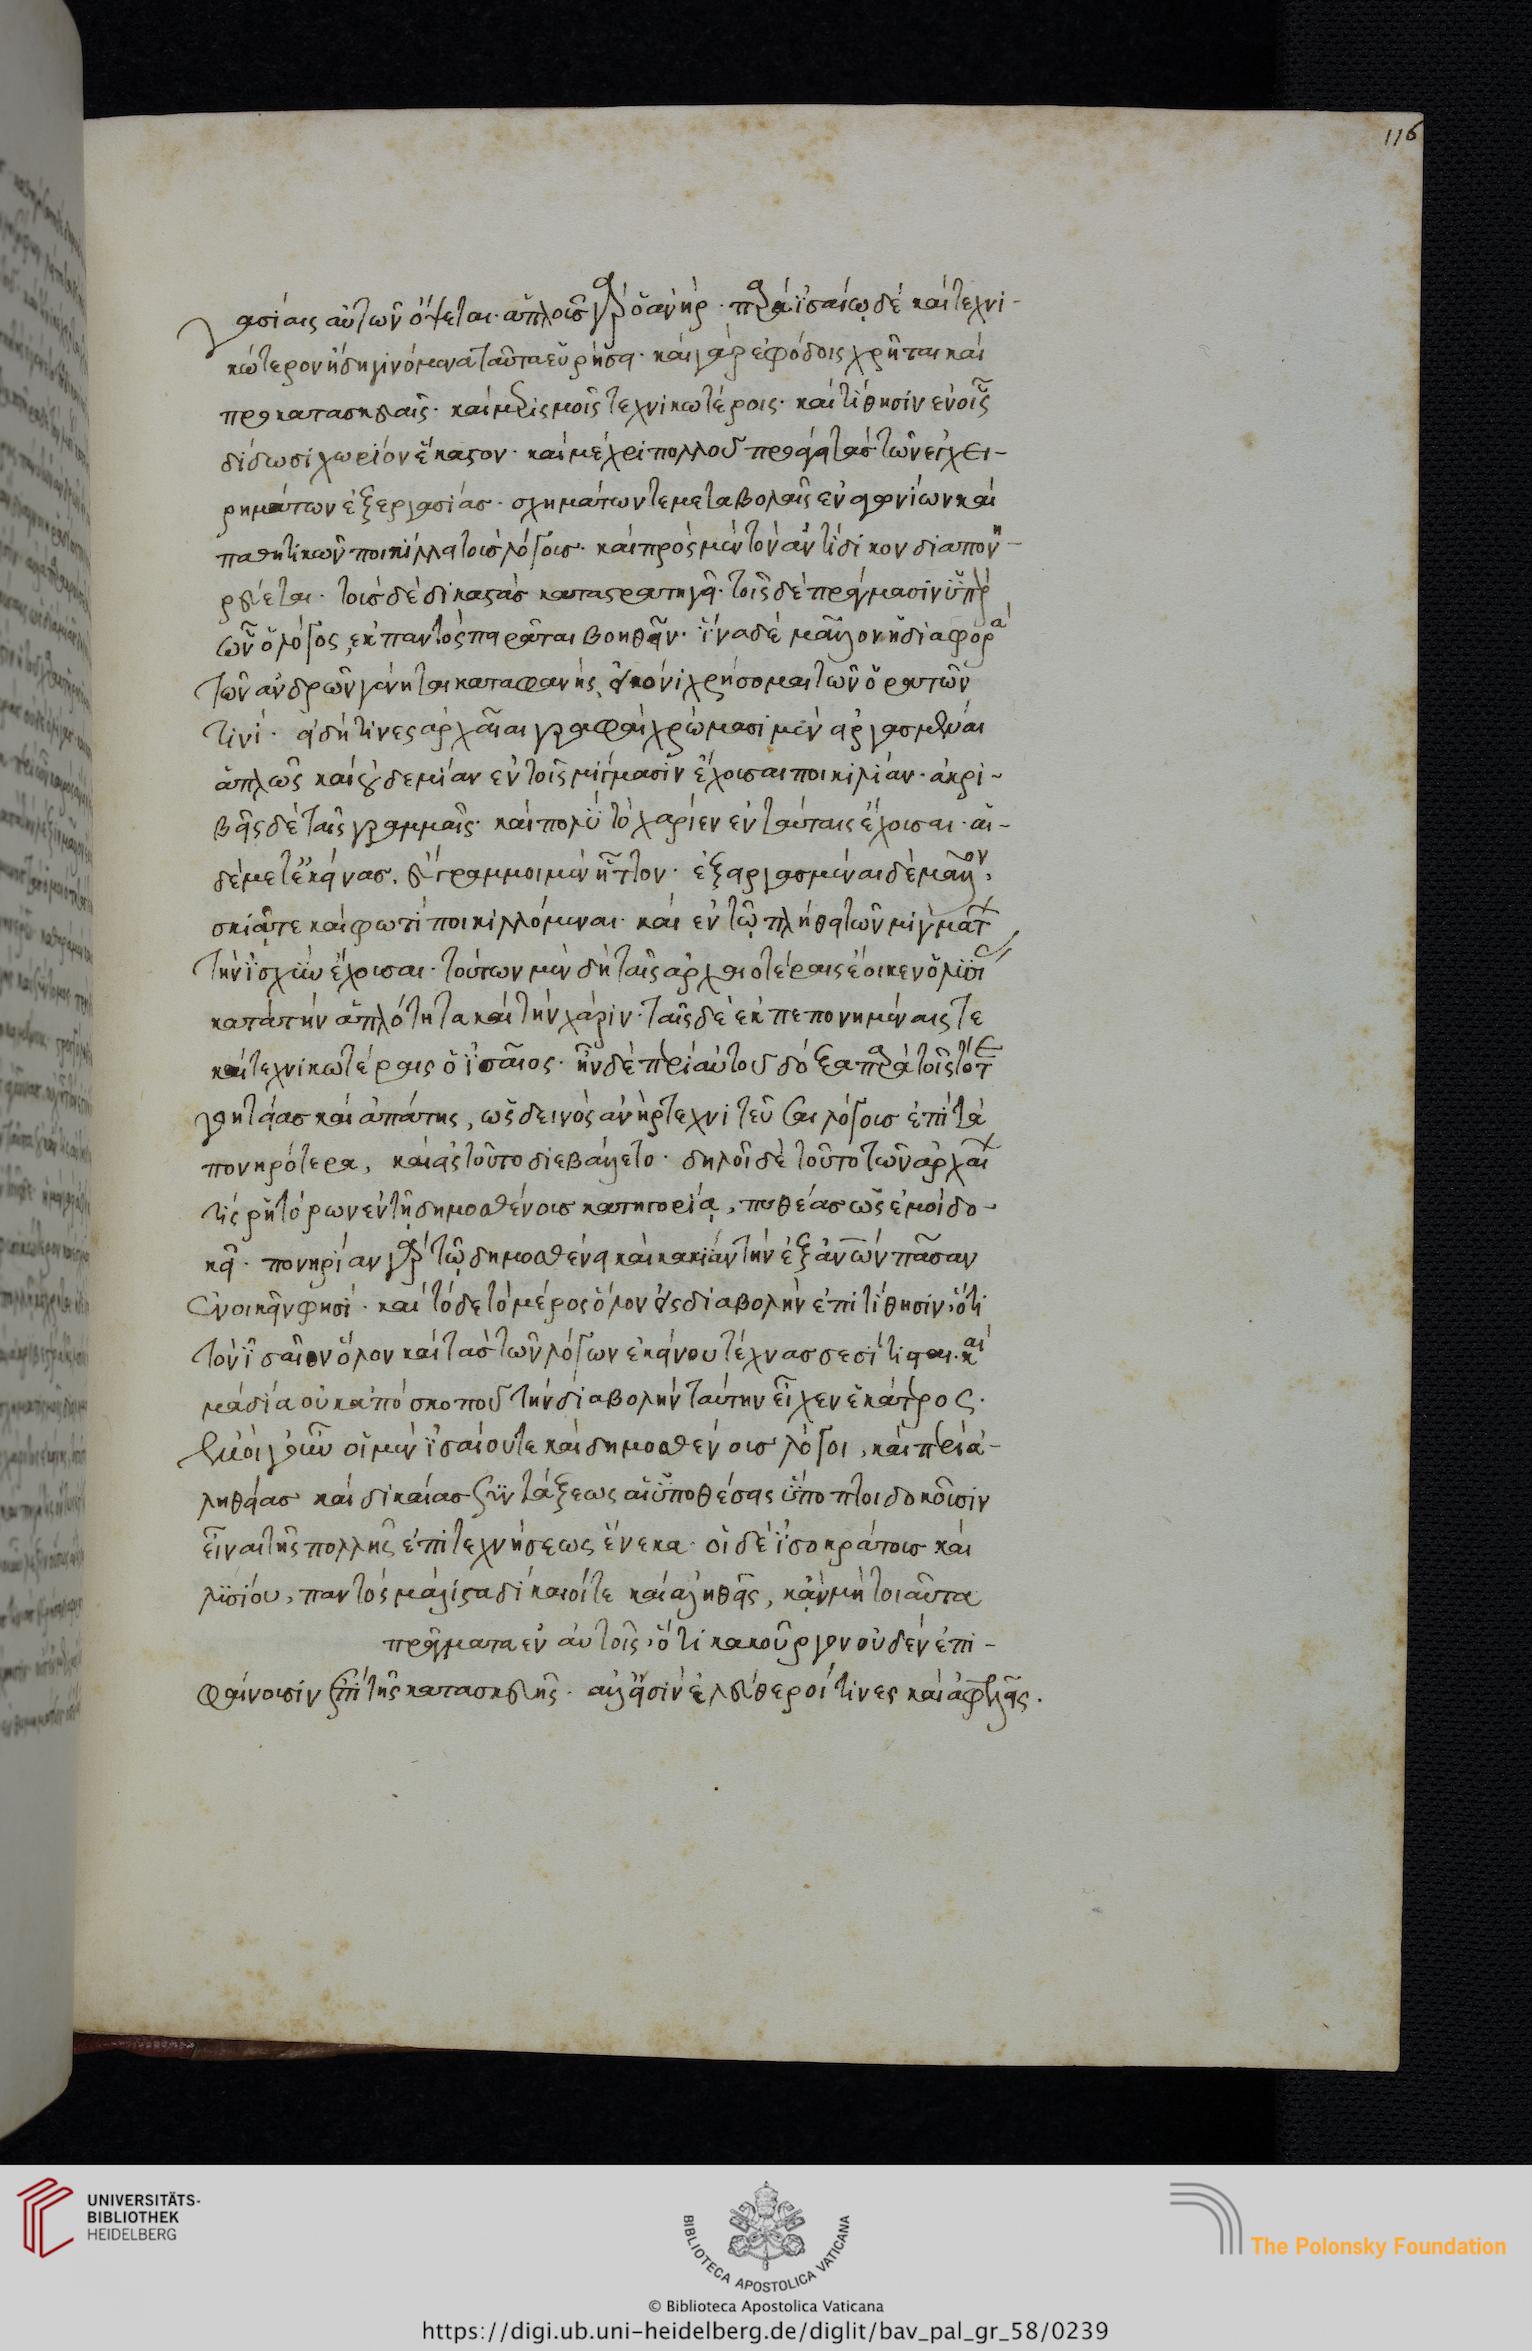 116
γασίαις αὐτῶν ὄψεται. ἁπλοῦς γὰρ ὁ ἀνήρ. παρὰ ἰσαίῳ δὲ καὶ τεχνι-
κώτερον ἤδη γινόμενα ταῦτα εὑρήσει. καὶ γὰρ ἐφόδοις χρῆται καὶ
προκατασκευαῖς. καὶ μερισμοῖς τεχνικωτέροις. καὶ τίθησιν ἐν οἷς
δίδωσι χωρίον ἕκαστον. καὶ μέχρι πολλοῦ προάγει τὰς τῶν ἐγχει-
ρημάτων ἐξεργασίας. σχημάτων τε μεταβολαῖς ἐναγωνίων καὶ
παθητικῶν ποικίλλει τοὺς λόγους. καὶ πρὸς μὲν τὸν ἀντίδικον διαπονη-
ρεύεται. τοὺς δὲ δικαστὰς καταστρατηγεῖ. τοῖς δὲ πράγμασιν ὑπὲρ
ὧν ὁ λόγος, ἐκ παντὸς πειρᾶται βοηθεῖν. ἵνα δὲ μᾶλλον ἡ διαφορὰ
τῶν ἀνδρῶν γένηται καταφανής, εἰκόνι χρήσομαι τῶν ὁρατῶν
τινί. εἰ δή τινες ἀρχαῖαι γραφαὶ χρώμασι μὲν εἰργασμέναι
ἁπλῶς καὶ οὐδεμίαν ἐν τοῖς μίγμασιν ἔχουσαι ποικιλίαν. ἀκρι-
βεῖς δὲ ταῖς γραμμαῖς. καὶ πολὺ τὸ χαρίεν ἐν ταύταις ἔχουσαι. αἱ-
δὲ μετ' ἐκείνας. εὔγραμμοι μὲν ἧττον. ἐξειργασμέναι δὲ μᾶλλον.
σκιᾷ τε καὶ φωτὶ ποικιλλόμεναι. καὶ ἐν τῷ πλήθει τῶν μιγμάτ
τὴν ἰσχὺν ἔχουσαι. τούτων μὲν δὴ ταῖς ἀρχαιοτέραις ἔοικεν ὁ λυσί
κατὰ τὴν ἁπλότητα καὶ τὴν χάριν. ταῖς δὲ ἐκπεπονημέναις τε
καὶ τεχνικωτέραις ὁ ἰσαῖος. ἦν δὲ περὶ αὐτοῦ δόξα παρὰ τοῖς τότε
γοητείας καὶ ἀπάτης, ὡς δεινὸς ἀνὴρ τεχνιτεῦσαι λόγους ἐπὶ τὰ
πονηρότερα, καὶ εἰς τοῦτο διεβάλλετο. δηλοῖ δὲ τοῦτο τῶν ἀρχαί
τις ῥητόρων ἐν τῇ δημοσθένους κατηγορίᾳ, πυθέας ὡς ἐμοὶ δο-
κεῖ. πονηρίαν γὰρ τῷ δημοσθένει καὶ κακίαν τὴν ἐξ ἀνῶν πᾶσαν
ἐνοικεῖν φησί. καὶ τόδε τὸ μέρος ὅλον εἰς διαβολὴν ἐπιτίθησιν, ὅτι
τὸν ἰσαῖον ὅλον καὶ τὰς τῶν λόγων ἐκείνου τέχνας σεσίτισται. καὶ
μὰ δία οὐκ ἀπὸ σκοποῦ τὴν διαβολὴν ταύτην εἶχεν ἑκάτερος.
ἐμοὶ γοῦν οἱ μὲν ἰσαίου τε καὶ δημοσθένους λόγοι, καὶ περὶ ἀ-
ληθείας καὶ δικαίας συντάξεως αἱ ὑποθέσεις ὕποπτοι δοκοῦσιν
εἶναι τῆς πολλῆς ἐπιτεχνήσεως ἕνεκα. οἱ δὲ ἰσοκράτους καὶ
λυσίου, παντὸς μάλιστα δίκαιοί τε καὶ ἀληθεῖς, κἂν μὴ τοιαῦτα
πράγματα ἐν αὐτοῖς, ὅτι κακοῦργον οὐδὲν ἐπι-
φαίνουσιν ἐπὶ τῆς κατασκευῆς. ἀλλ' εἰσὶν ἐλεύθεροί τινες καὶ ἀφελεῖς.
UNIVERSITÄTS-
BIBLIOTHEK
HEIDELBERG
BIBLIOTECA APOSTOLICA VATICANA
The Polonsky Foundation
© Biblioteca Apostolica Vaticana
https://digi.ub.uni-heidelberg.de/diglit/bav_pal_gr_58/0239